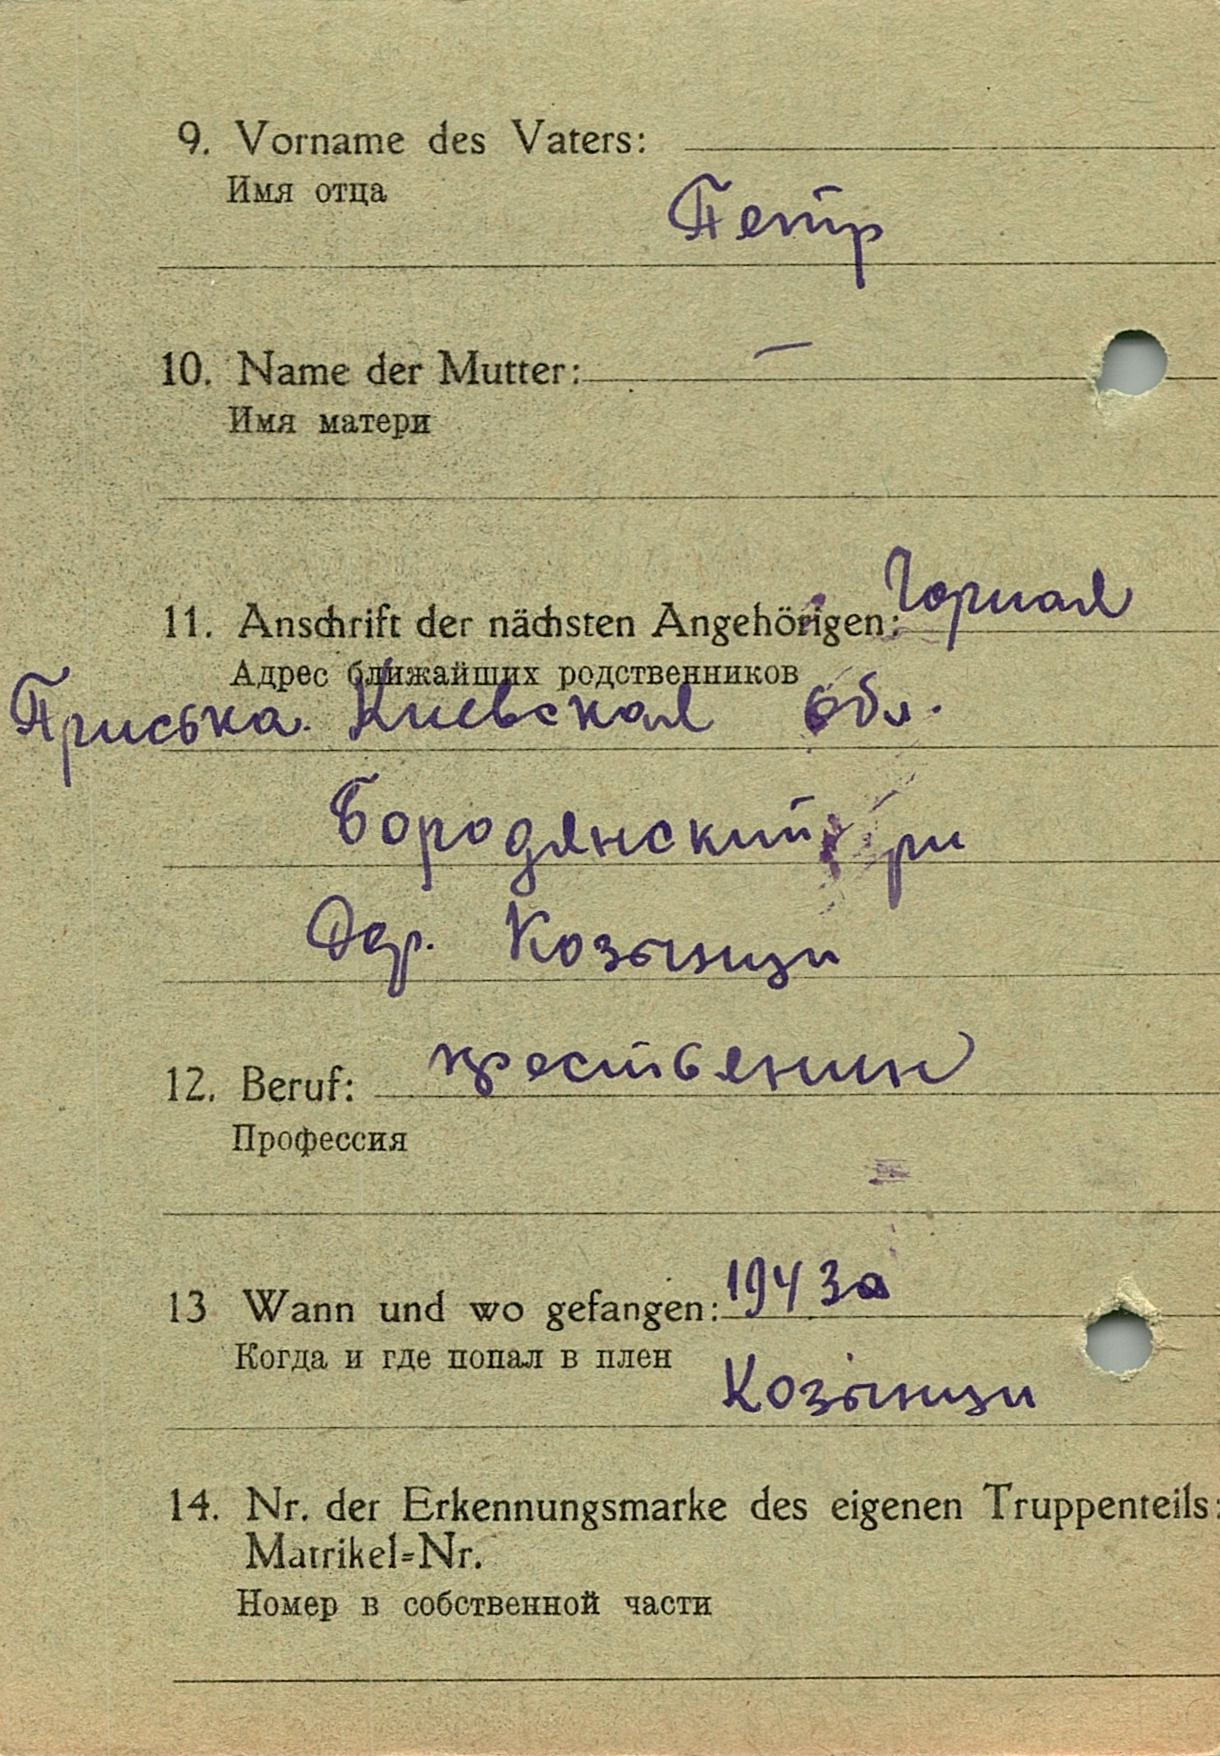 9. Vorname des Vaters:
Имя отца
Петр
10. Name der Mutter: –
Имя матери
11. Anschrift der nächsten Angehörigen: Горная
Адрес ближайших родственников
Приська. Киевская обл.
Бородянский
Дер. Козынци
12. Beruf: крестьянин
Профессия
13 Wann und wo gefangen: 1943
Когда и где попал в плен
Козинци
14. Nr. der Erkennungsmarke des eigenen Truppenteils:
Matrikel=Nr.
Номер в собственной части